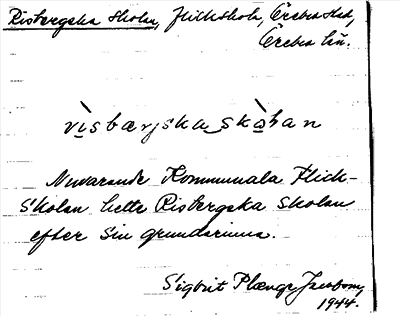 Risbergska skolan, Flickskola, Örebro stad,
Örebro län.
rìsbærjska skòlan
Nuvarande Kommunala Flick-
skolan hette Risbergska skolan
efter sin grundarinna.
Sigbrit Plænge Jacobson,
1944.